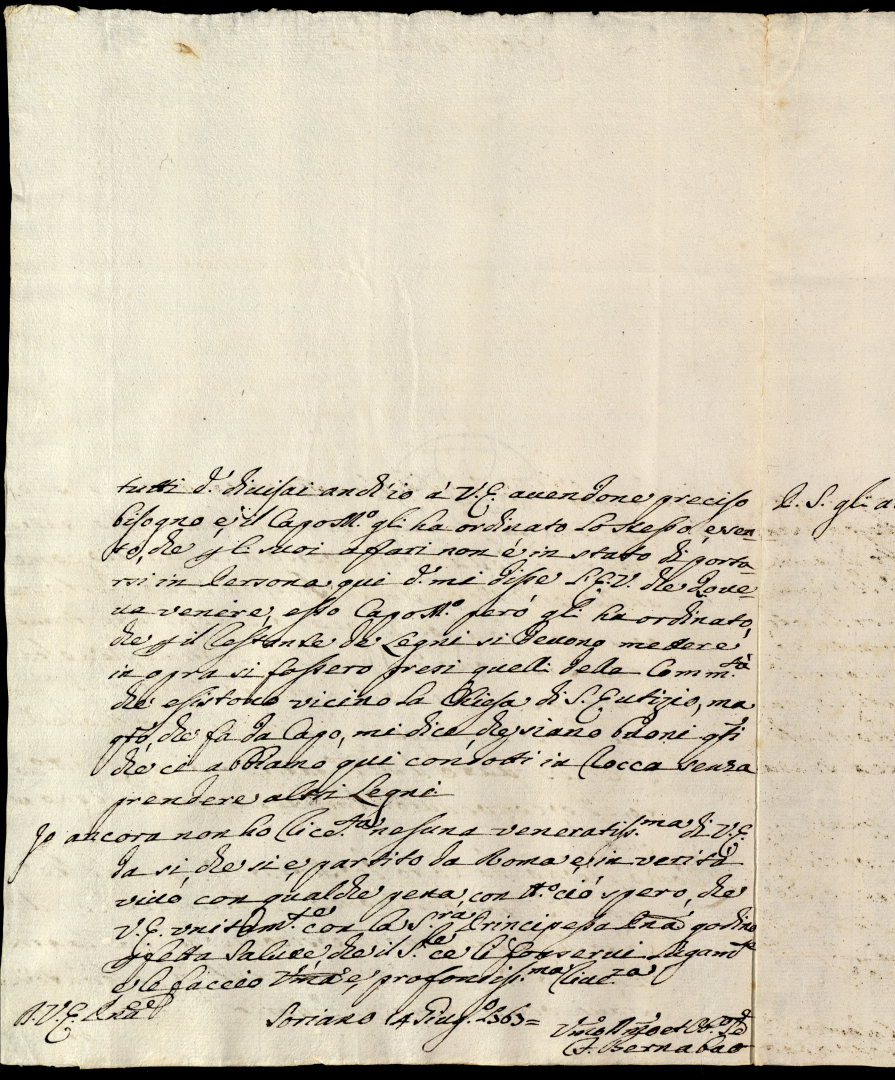 tutti d.i divisai anch'io à V.E. avendone preciso
bisogno, e il Capo M.ro gli ha ordinato lo stesso, e sen-
to, che gli suoi affari non è in stato di porta-
rsi in Persona qui d.i mi disse l'E.V. che dove-
va venire, esso Capo M.ro però gli ha ordinato,
che il restante de Legni si devono mettere
in opra si fossero presi quelli della Comm.tà
che esistono vicino la Chiesa di S. Eutizio, ma
q.to, che fa da Capo, mi dice, che siano buoni q.sti
che ci abbiamo qui condotti in Rocca senza
prendere altri Legni
Io ancora non ho rice.ta nessuna veneratiss.ma di V.E.
da si che si è partito da Roma e, in verità
vivo con qualche pena, con tt.o ciò spero, che
V.E. unitam.te con la S.ra Principessa P.na godino
p̱fetta Salute che il S.re ce li conservi lũgam.te
e le faccio um.a e, profondiss.ma Rive.za
D. V. E. P.na
Soriano 4 Giug.o 1763=
Um̃o Dm̃o et Ob.o Ser.e
F. Bernabao
P. S. gli a